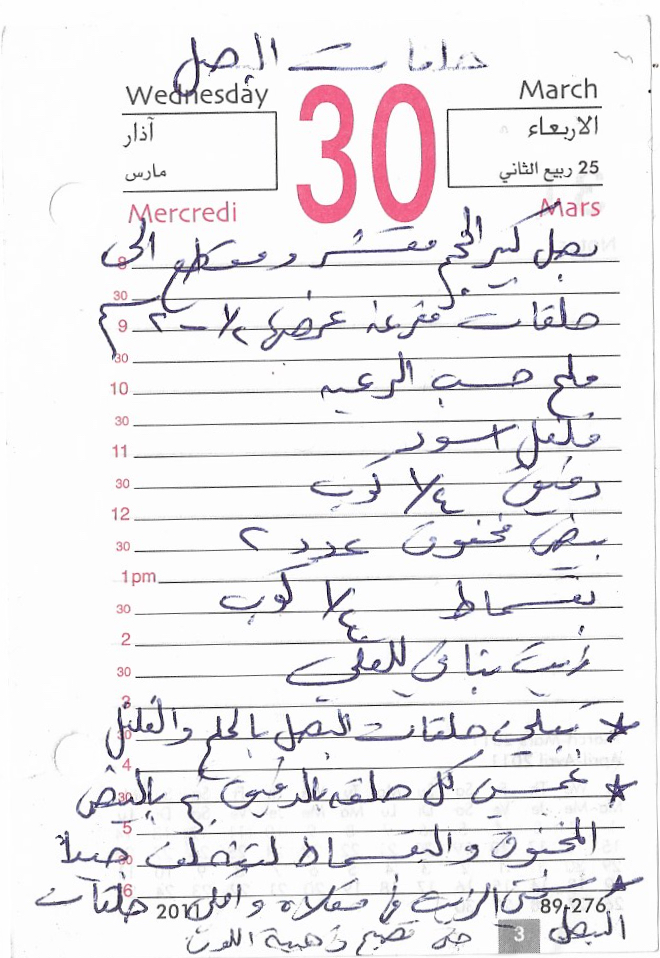 حلقات البصل
Wednesday 30 March
آذار الاربعاء
مارس 25 ربيع الثاني
Mercredi Mars
8 بصل كبير الحجم مقشر ومقطع الى
30
9 حلقات مفرغة عرضها ١/٢ - ٢ سم
30
10 ملح حسب الرغبه
30
11 فلفل اسود
30 دقيق ١/٤ كوب
12
30 بيض مخفوق عدد ٢
1pm
30 بقسماط ١/٤ كوب
2
30 زيت نباتي للقلي
3
30 * تتبلي حلقات البصل بالملح والفلفل
4
30 * غمسي كل حلقه بالدقيق ثم بالبيض
5
30 المخفوق والبقسماط لتتغلف جيداً
6 * سخني الزيت في مقلاه واقلي حلقات
2011 89-276
البصل حتى تصبح ذهبية اللون
3